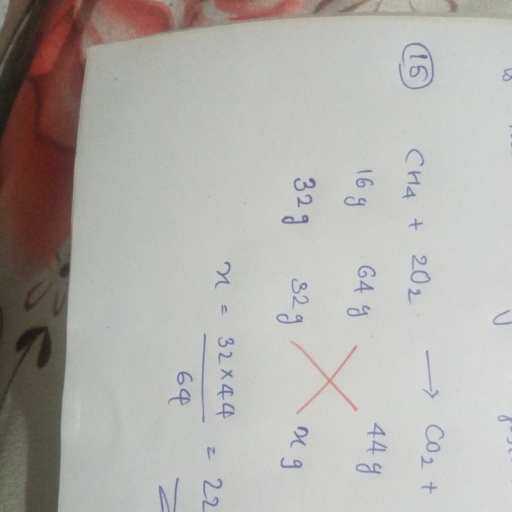 15 CH4 + 2O2 → CO2 +
16g 64g 44g
32g 32g xg
x = 32×44 / 64 = 22